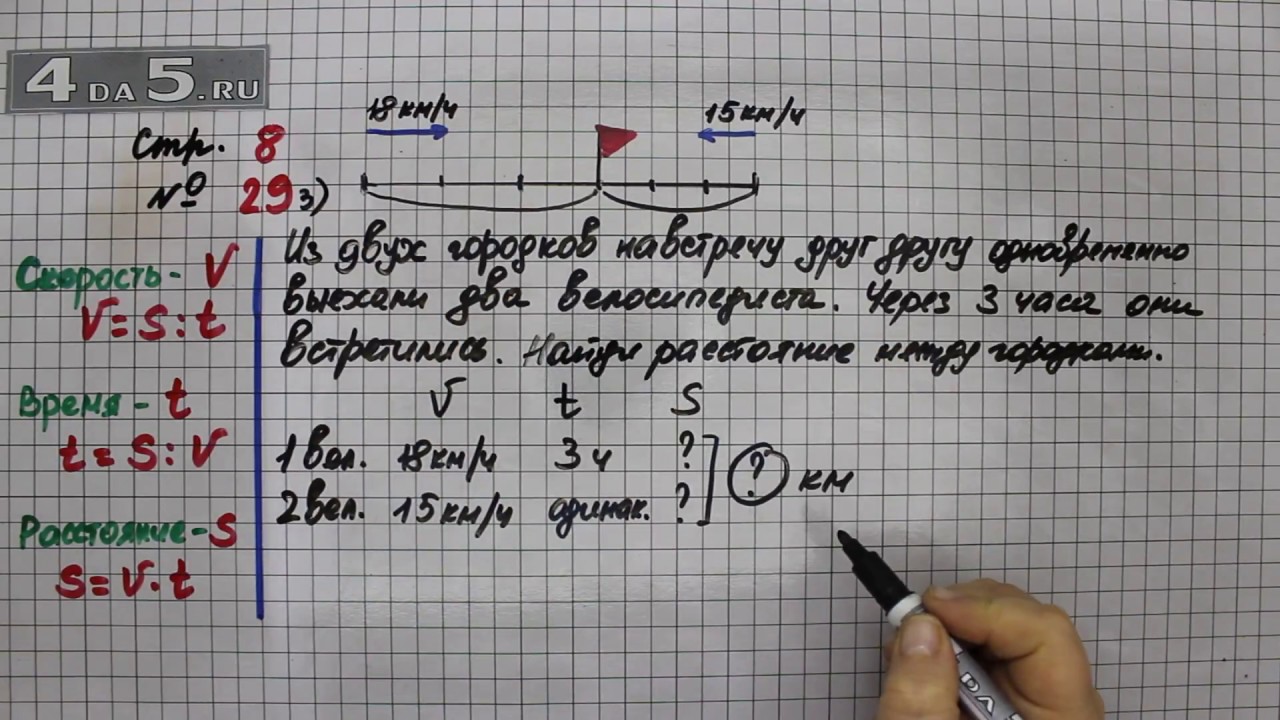 4 DA 5.RU
18км/ч 15км/ч
Стр. 8
№ 29 3)
Из двух городков навстречу друг другу одновременно
выехали два велосипедиста. Через 3 часа они
встретились. Найди расстояние между городками.
Скорость - V
V = S : t
Время - t
t = S : V
Расстояние - S
S = V · t
V t S
1 вел. 18км/ч 3 ч ?
2 вел. 15км/ч одинак. ?
? км